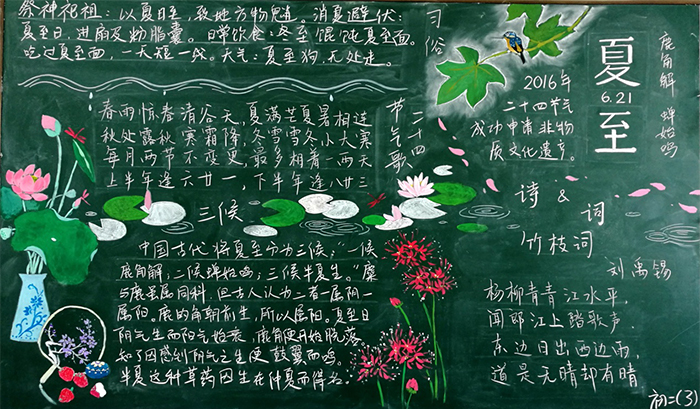 祭神祀祖:以夏日至,致地方物鬼。消夏避伏:
夏至日,进扇及粉脂囊。日常饮食:冬至馄饨夏至面。
吃过夏至面,一天短一线。天气:夏至狗,无处走。
习俗
春雨惊春清谷天,夏满芒夏暑相连
秋处露秋寒霜降,冬雪雪冬小大寒
每月两节不变更,最多相差一两天
上半年逢六廿一,下半年逢八廿三
二十四
节气歌
三候
中国古代将夏至分为三候:“一候
鹿角解;二候蝉始鸣;三候半夏生。”麋
与鹿虽属同科,但古人认为二者一属阴一
属阳。鹿的角朝前生,所以属阳。夏至日
阴气生而阳气始衰,鹿角便开始脱落。
知了因感到阴气之生便鼓翼而鸣。
半夏这种草药因生在仲夏而得名。
2016年
二十四节气
成功申请非物
质文化遗产。
夏
6.21
至
鹿角解 蝉始鸣
诗 & 词
竹枝词
刘禹锡
杨柳青青江水平,
闻郎江上踏歌声.
东边日出西边雨,
道是无晴却有晴
初二(3)